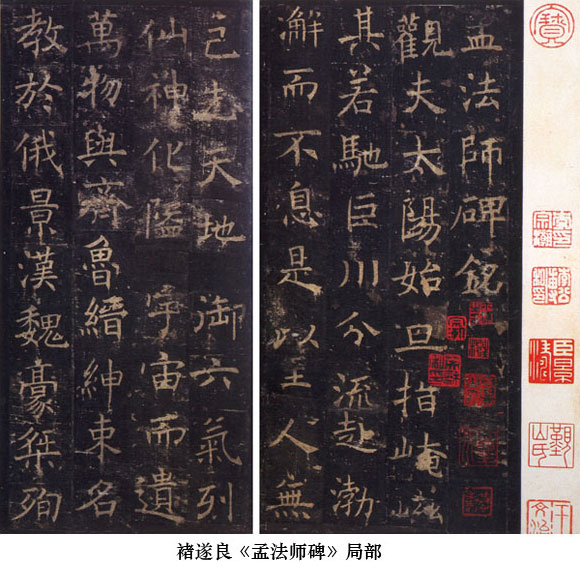 孟法師碑銘
觀夫太陽始旦指崦嵫
其若馳巨川分流赴渤
澥而不息是以至人無
己先天地 御六氣列
仙神化隘 宇宙而遺
萬物與齊魯縉紳束名
教於俄景漢魏豪桀殉
褚遂良《孟法师碑》局部